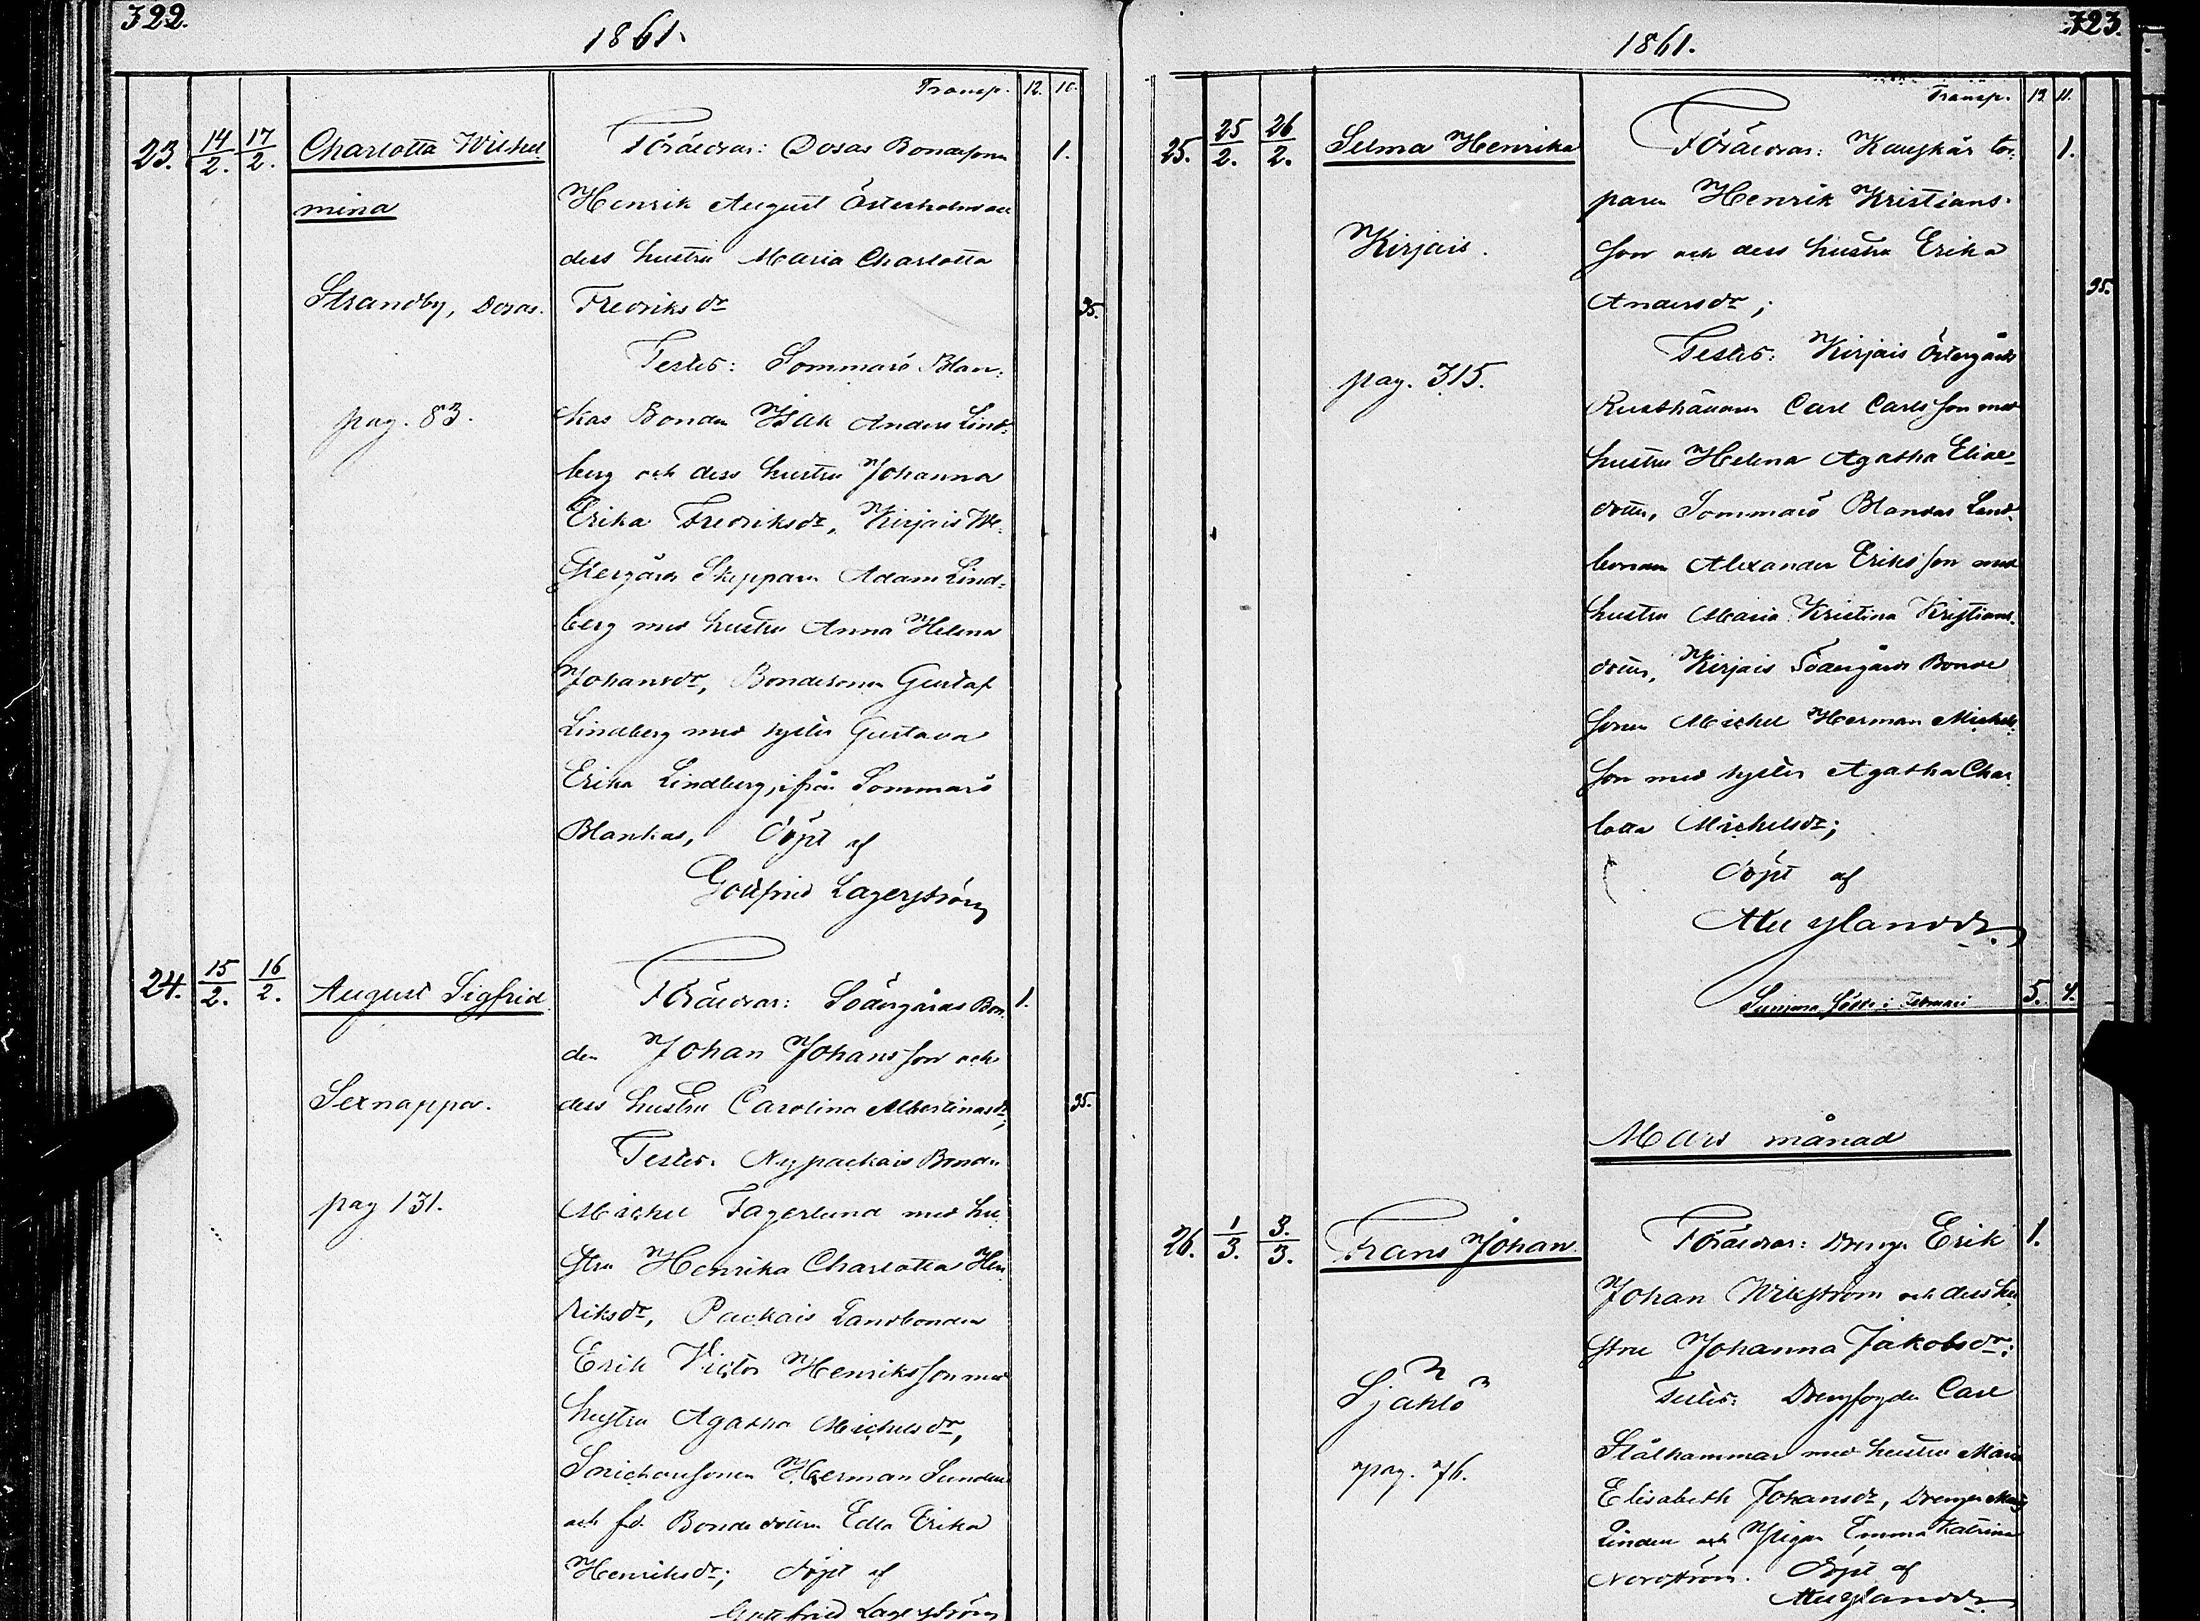 322.
1861.
Transp. 12. 10.
23. 14/2. 17/2. Charlotta Wilhel
mina
Strandby, Dosas.
pag. 83.
Föräldrar: Dosas Bondesonen 1.
Henrik August Österholm och
dess hustru Maria Charlotta
Fredriksdr 35.
Testes: Sommarö Blan:
kas Bonden Isak Anders Lind:
berg och dess hustru Johanna
Erika Fredriksdr, Kirjais We:
stergårds Skepparn Adam Lind:
berg med hustru Anna Helena
Johansdr, Bondesonen Gustaf
Lindberg med syster Gustava
Erika Lindberg, ifrån Sommarö
Blankas, döpt af
Gottfrid Lagerström
24. 15/2. 16/2. August Sigfrid
Sexnappa.
pag 131.
Föräldrar: Södergårds Bon: 1.
den Johan Johansson och
dess hustru Carolina Albertinasdr; 35.
Testes: Nypackais Bonden
Michel Fagerlund med hu
stru Henrika Charlotta Hen
riksdr, Packais Landbonden
Erik Victor Henriksson med
hustru Agatha Michelsdr,
Herman
och fd. Bonde dottren Edla Erika
Henriksdr; döpt af
Gottfried Lagerström
323.
1861.
Transp. 13. 11.
25. 25/2. 26/2. Selma Henrika
Kirjais.
pag. 315.
Föräldrar: Kauskär tor: 1.
paren Henrik Kristians:
son och dess hustru Erika
Andersdr; 35.
Testes: Kirjais Östergårds
Rusthållaren Carl Carlsson med
hustru Helena Agatha Elias-
dotter, Sommarö Blankas Land:
bonden Alexander Eriksson med
hustru Maria Kristina Kristians:
dotter, Kirjais Södergårds Bonde
sonen Michel Herman Michels:
son med syster Agatha Char
lotta Michelsdr;
döpt af
Summa födde i Februari 5. 4.
Mars månad
26. 1/3. 3/3. Frans Johan.
Själö
pag. 76.
Föräldrar: Drengen Erik 1.
Johan Wikström och dess hu
stru Johanna Jakobsdr;
Testes: Drengfogden Carl
Stålhammar med hustru Maria
Elisabeth Johansdr, Drengen
Linden och Pigan Emma Katrina
Nordström. Döpt af